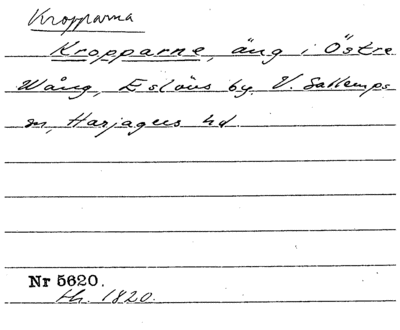 Kropparna
Kropparne, äng i Östre
Wång, Eslövs by. V. Sallerups
sn, Harjagers hd.
Nr 5620.
th. 1820.